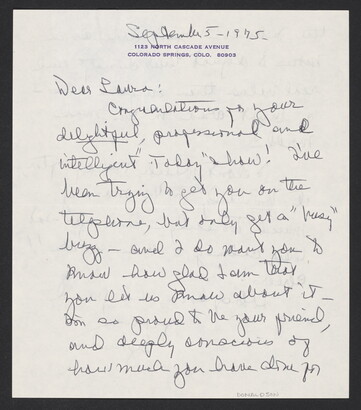 September 5 - 1975
1123 NORTH CASCADE AVENUE
COLORADO SPRINGS, COLO. 80903
Dear Laura:
Congratulations for your
delightful, professional and
intelligent "Today" show! I've
been trying to get you on the
telephone, but only get a "busy"
buzz — and I do want you to
know how glad I am that
you let us know about it —
so proud to be your friend,
and deeply conscious of
how much you have done for
DONALDSON